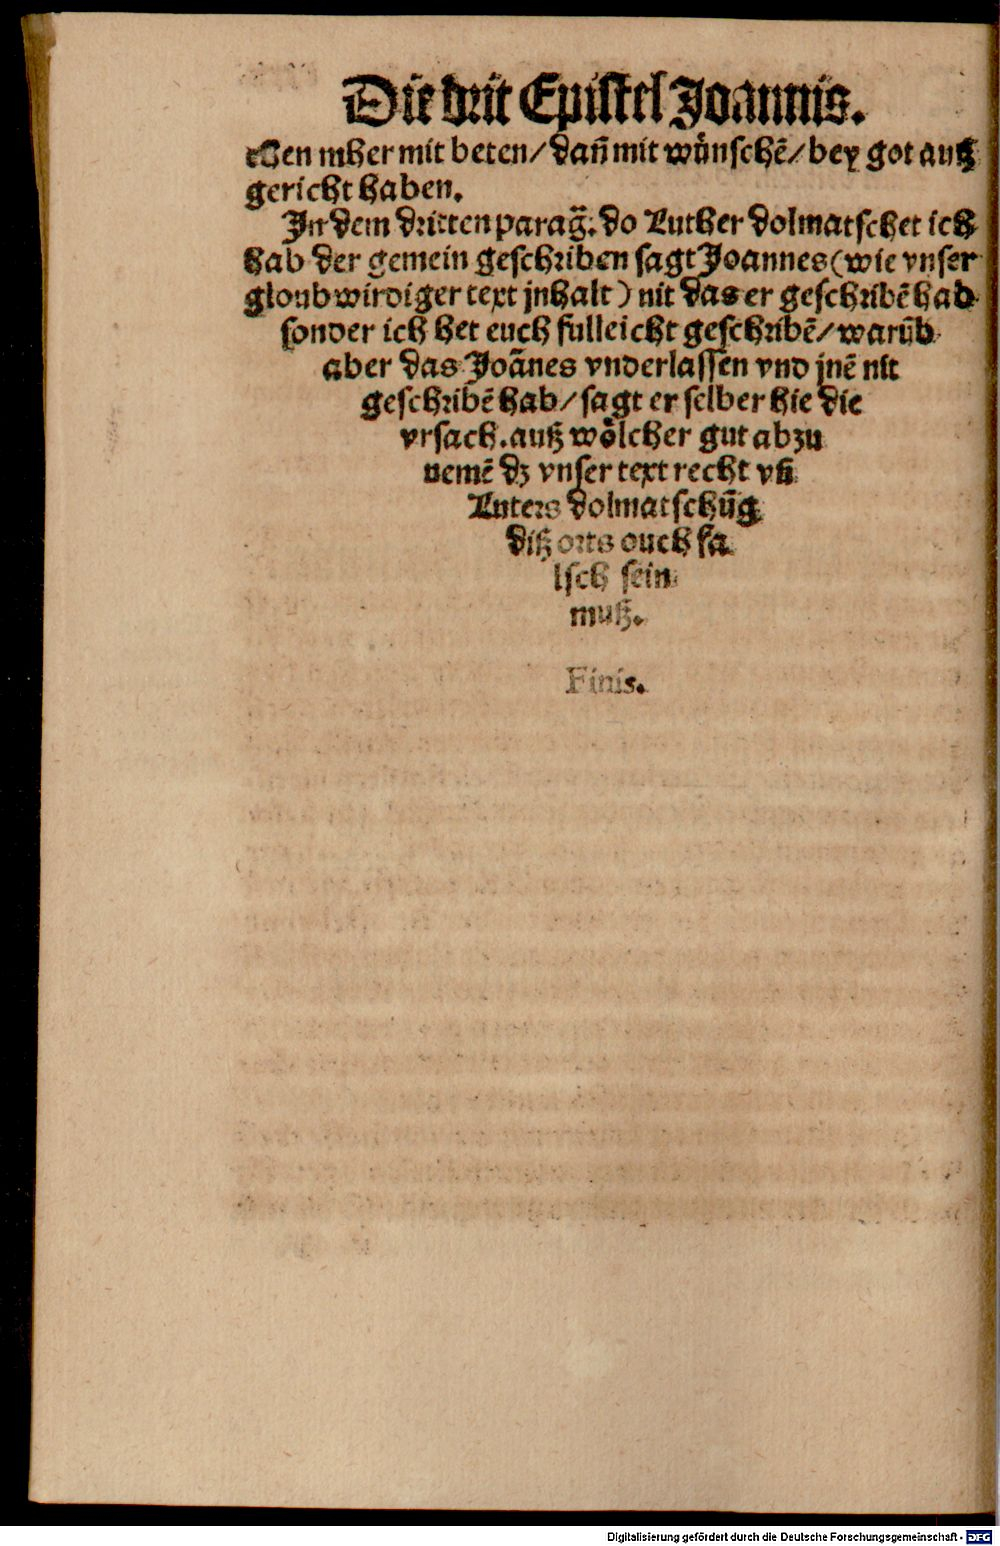 Die drit Epistel Joannis.
chen mher mit beten/ dañ mit wünschē/ bey got auß
gericht haben.
In dem dritten parag̃. do Luther dolmatschet ich
hab der gemein geschriben sagt Joannes (wie vnser
gloubwirdiger text jnhalt) nit das er geschribē hab
sonder ich het euch fulleicht geschribē/ warūb
aber das Joānes vnderlassen vnd jnē nit
geschribē hab/ sagt er selber hie die
vrsach. auß wölcher gut abzu
nemē dz vnser text recht vñ
Luters dolmatschūg
diß orts ouch fa
lsch sein
muß.
Finis.
Digitalisierung gefördert durch die Deutsche Forschungsgemeinschaft - DFG